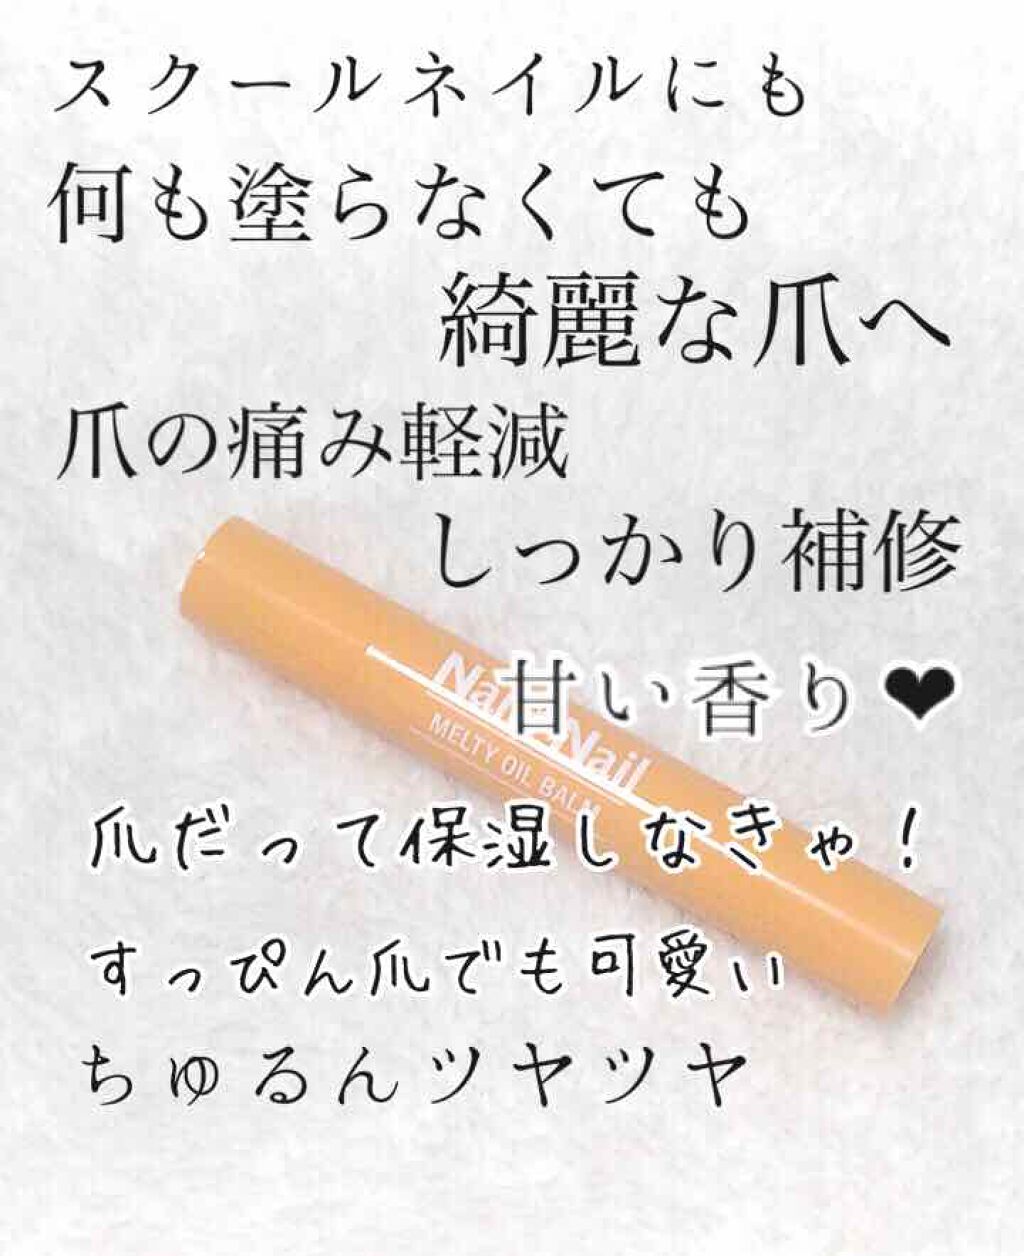 スクールネイルにも
何も塗らなくても
綺麗な爪へ
爪の痛み軽減
しっかり補修
甘い香り❤
Nail Nail
MELTY OIL BALM
爪だって保湿しなきゃ！
すっぴん爪でも可愛い
ちゅるんツヤツヤ